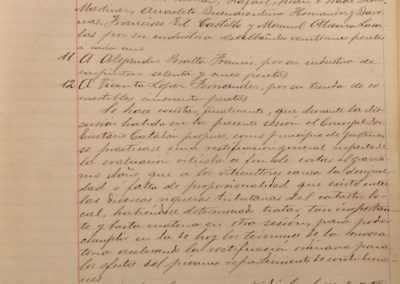 Martinez, Buenaventura Hernandez y
Francisco Gil Castillo y Manuel
por su industria de veintinueve pesetas
á cada uno
11 A Alejandro Peralta Franco, por su industria de
carpintero setenta y cinco pesetas
12 A Vicente Lopez Fernandez, por su tienda de co-
mestibles cincuenta pesetas
Se hace constar, finalmente, que durante la dis-
cusión habida en la presente sesión el Concejal Don
Eustasio Catalán propuso, como principio de justicia,
se practicase una rectificación general respecto de
la evaluación á fin de cortar el gravi-
simo daño que a los viticultores causa la desigual-
dad o falta de proporcionalidad que existe entre
las diversas riquezas tributarias del catastro lo-
cal, habiendose determinado tratar, tan importan-
te y vasta materia en otra sesión, para poder
cumplir en la de hoy los terminos de la convoca-
toria acelerando la rectificación ordinaria para
los efectos del proximo repartimiento de contribucio-
nes